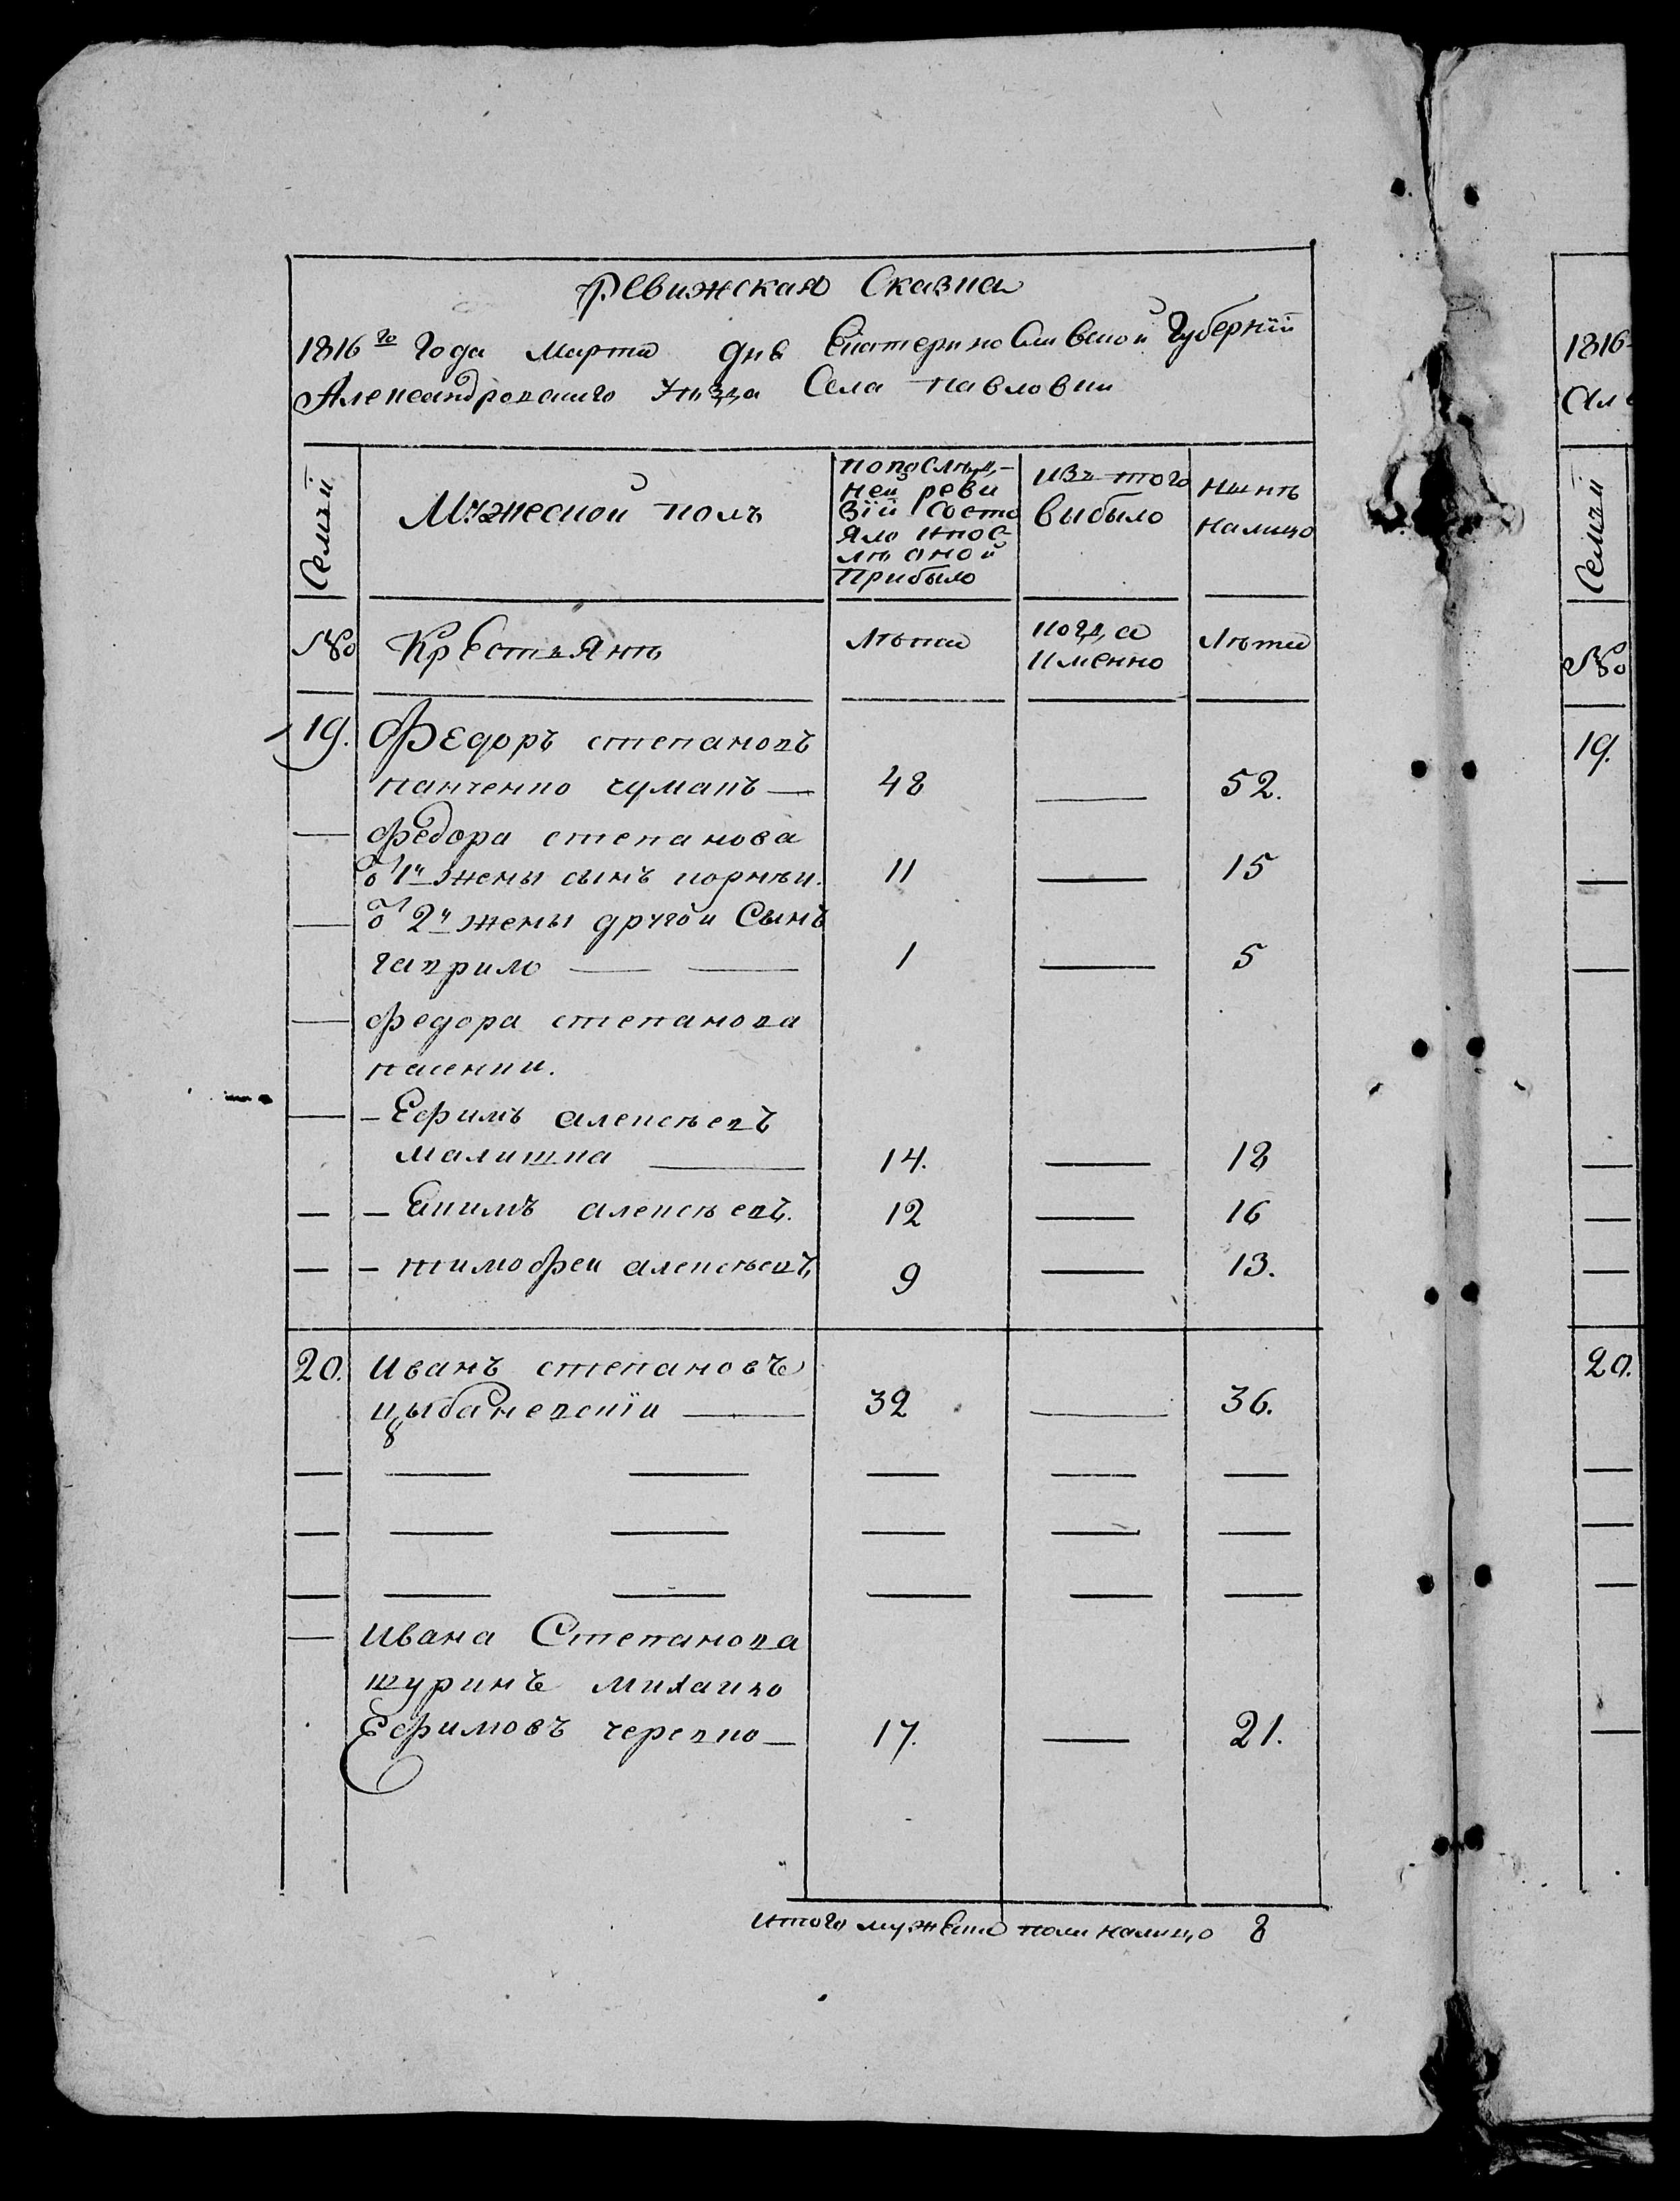 Ревижская Сказка
1816го Года Марта дня Екатеринославской Губернїй
Александровскаго Уезда Села Павловки
Семьй
Мужеской полъ
попослѣд-
ней реви
зїй состо
яло ипос
лѣ оной
прибыло
изъ того
выбыло
нынѣ
налицо
№
Крестьянѣ
лѣта
когда
именно
лѣта
19. Федоръ степановъ
панченко чумакъ — 48 — 52.
— федора степанова
от 1й жены сынъ корнѣй. 11 — 15
— от 2й жены другой Сынъ
гаврило — — 1 — 5
— федора степанова
пасенки.
— - Ефимъ алексѣевъ
малишка — 14. — 18
— - Екимъ алексѣевъ. 12 — 16
— - тимофей алексѣевъ 9 — 13.
20. Иванъ степановъ
цыбаневскїй — 32 — 36.
— — — — — —
— — — — — —
— — — — — —
— Ивана Степанова
шуринъ михайло
Ефимовъ черевко — 17. — 21.
итого мужска пола налицо 8
1816
Але
Семьй
№
19.
—
—
—
—
—
20.
—
—
—
—